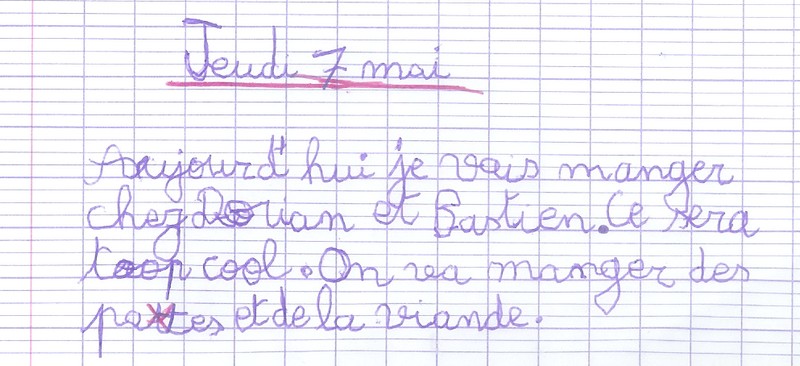 Jeudi 7 mai
Aujourd'hui je vais manger
chez Dorian et Bastien. Ce sera
trop cool. On va manger des
pates et de la viande.